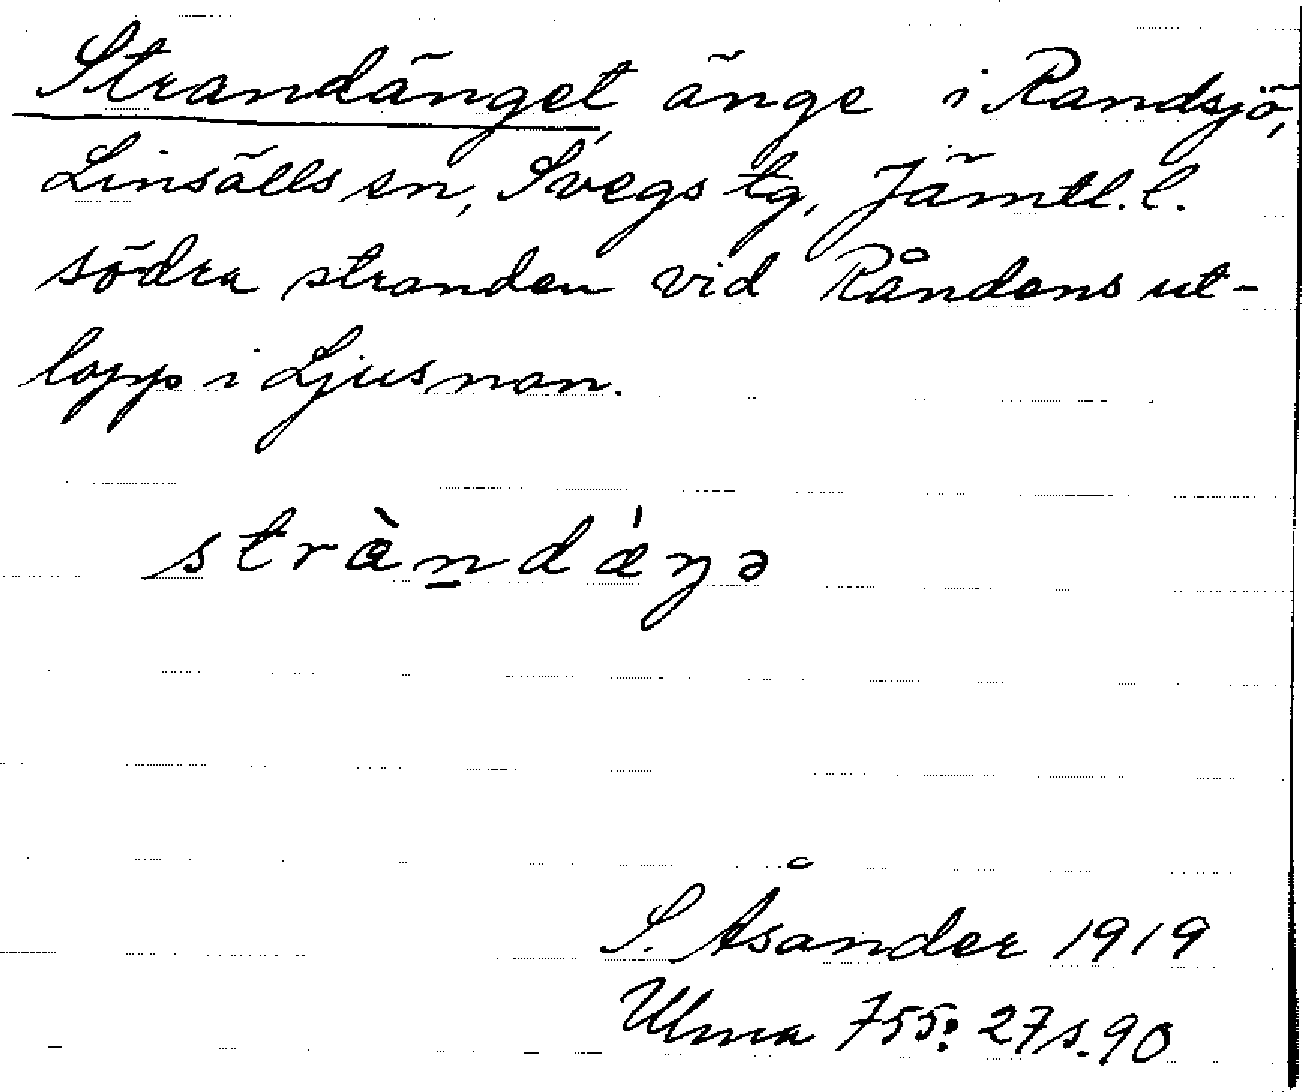 Strandänget, änge i Randsjö,
Linsälls sn, Svegs tg, Jämtl. l.
södra stranden vid Råndans ut-
lopp i Ljusnan.
stràn̠dáŋə
S. Åsander 1919
Ulma 755: 27 s. 90